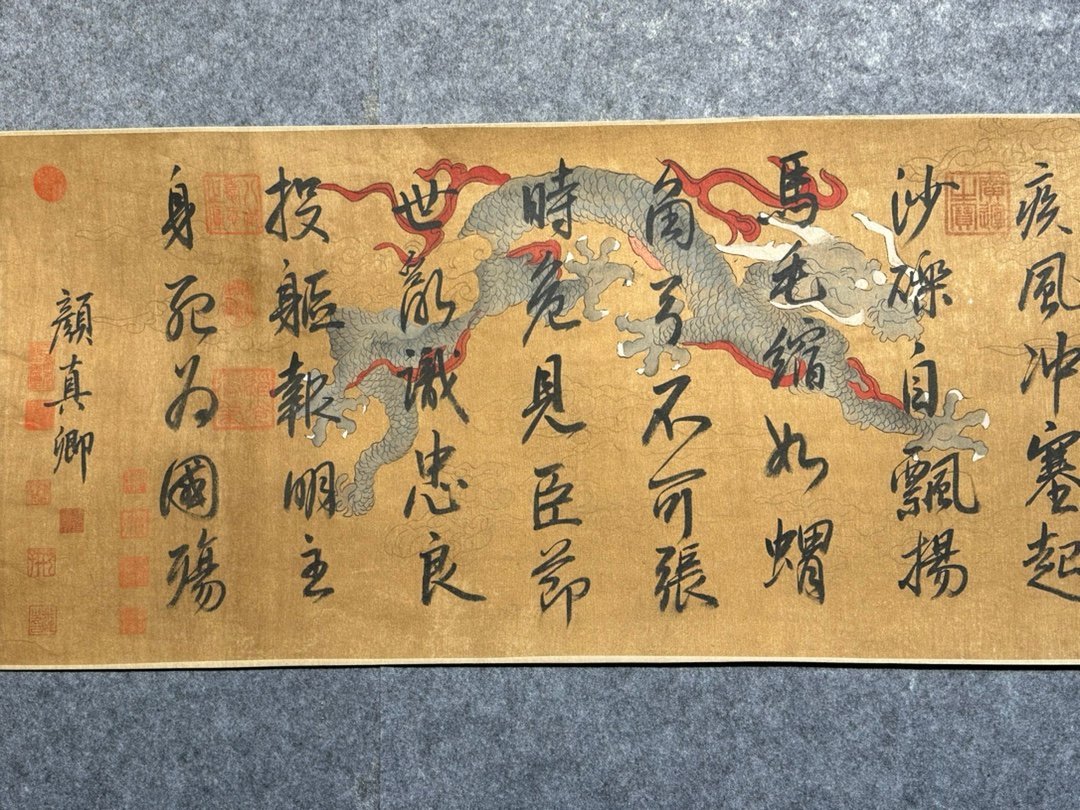 疾風冲塞起
沙礫自飄揚
馬毛縮如蝟
角弓不可張
時危見臣節
世亂識忠良
投軀報明主
身死為國殤
顏真卿